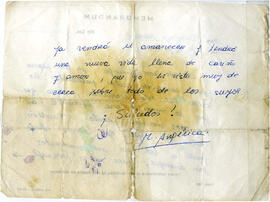 Ya vendrá el amanecer y tendrá
una nueva vida llena de cariño
y amor, que yo la viva muy de
cerca sobre todo de los suyos
¡Saludos!
M. Angélica